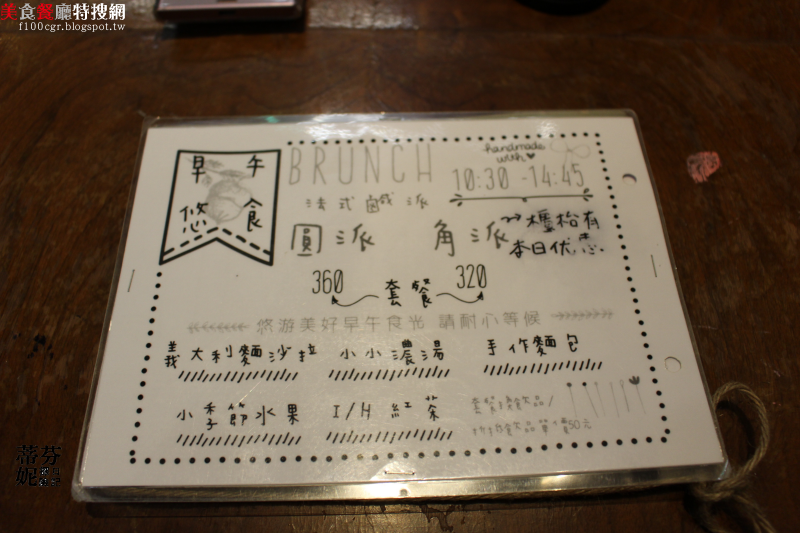 美食餐廳特搜網
f100cgr.blogspot.tw
早午
悠食
BRUNCH
handmade
with
10:30 - 14:45
法式鹹派
圓派 角派
櫃枱有
本日优惠.
360 套餐 320
悠游美好早午食光 請耐心等候
義大利麵沙拉 小小濃湯 手作麵包
小季節水果 I/H 紅茶
飲品/
飲品單價50元
蒂芬
妮